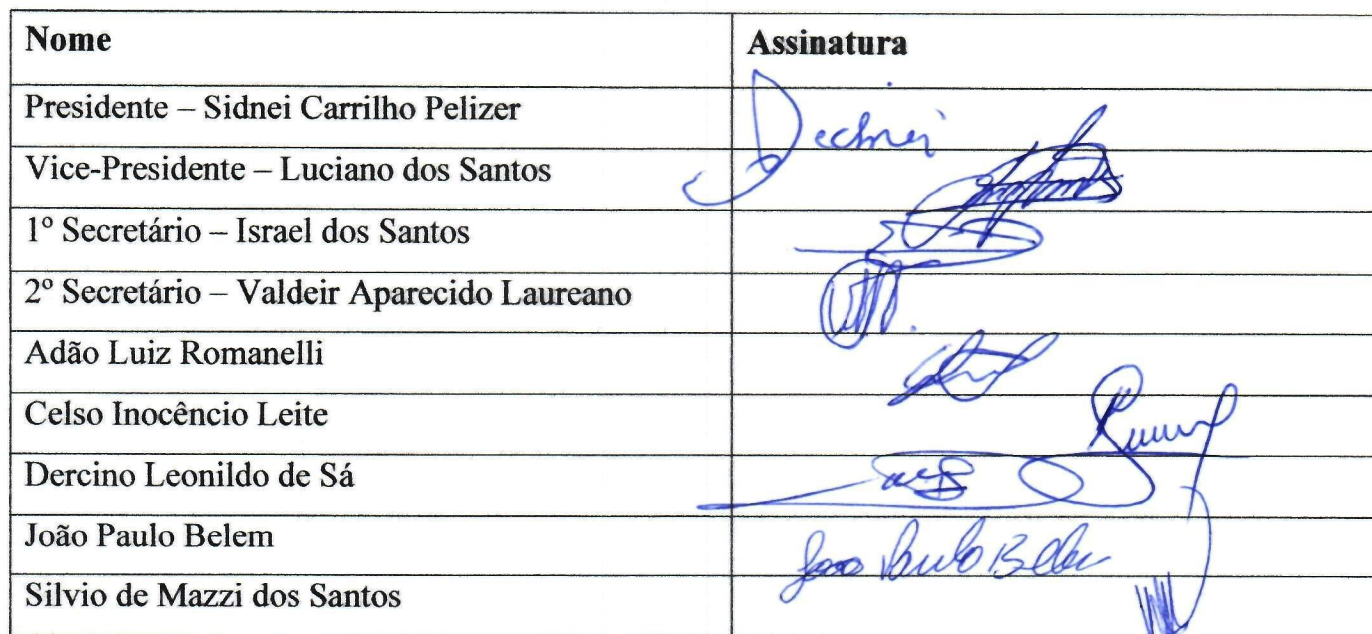 Nome Assinatura
Presidente – Sidnei Carrilho Pelizer
Vice-Presidente – Luciano dos Santos
1º Secretário – Israel dos Santos
2º Secretário – Valdeir Aparecido Laureano
Adão Luiz Romanelli
Celso Inocêncio Leite
Dercino Leonildo de Sá
João Paulo Belem João Paulo Belem
Silvio de Mazzi dos Santos